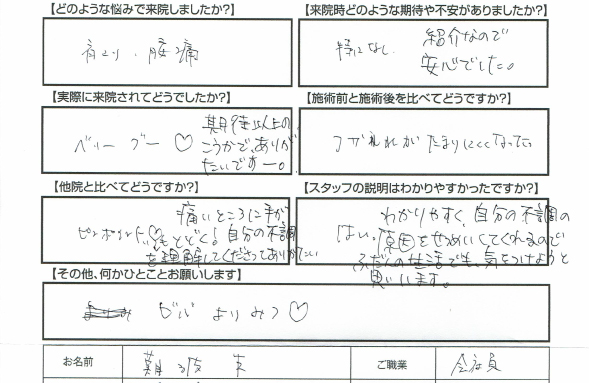 【どのような悩みで来院しましたか?】
肩こり、腰痛
【来院時どのような期待や不安がありましたか?】
特になし。
紹介なので
安心でした。
【実際に来院されてどうでしたか?】
ベリーグー♡
期待以上の
こうかで、ありが
たいですー。
【施術前と施術後を比べてどうですか?】
つかれがたまりにくくなった
【他院と比べてどうですか?】
痛いところに手が
ピンポイントに
とどく!自分の不調
を理解してくださってありがたい
【スタッフの説明はわかりやすかったですか?】
はい。
わかりやすく、自分の不調の
原因をせつめいしてくれるので
ふだんの生活でも、気をつけようと
思います。
【その他、何かひとことお願いします】
よりみつ♡
お名前
ご職業
会社員